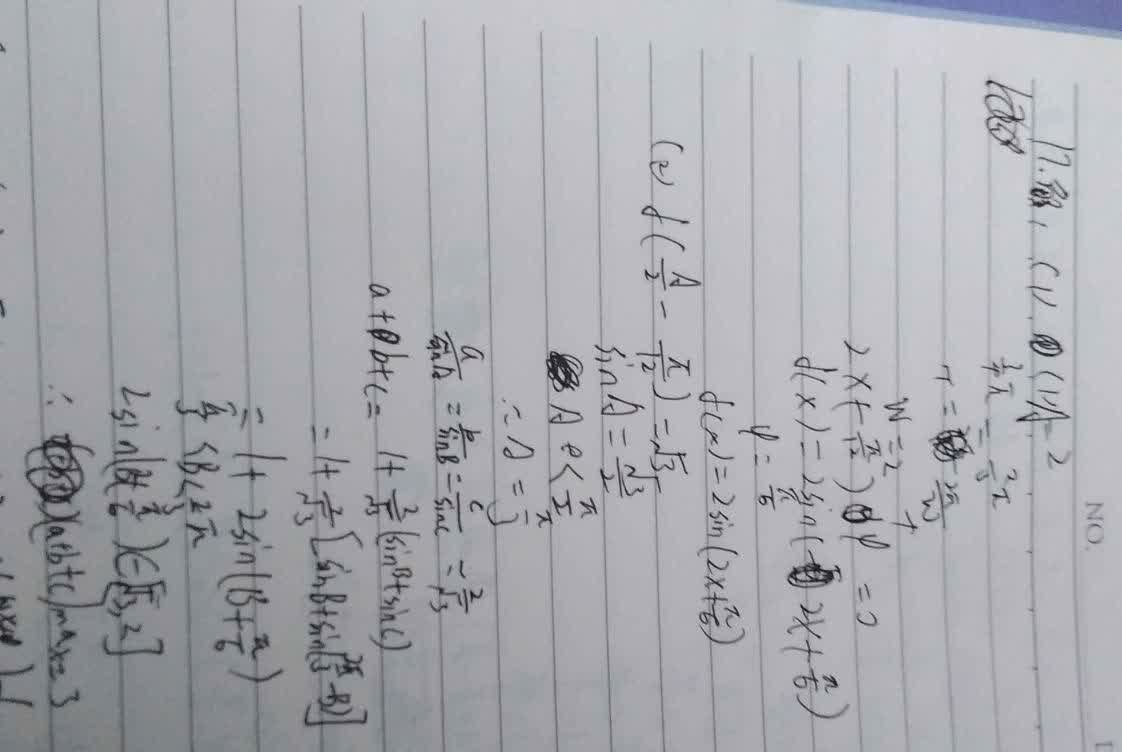 NO.
17.解: (1) A=2
T = 2π/w
w=2
2×(-π/12)+φ=0
f(x)=2sin(2x+π/6)
φ=π/6
f(x)=2sin(2x+π/6)
(2) f(A/2 - π/12)=√3
sinA=√3/2
A<π/2
∴A=π/3
a/sinA=b/sinB=c/sinC=2/√3
a+b+c=1+2/√3(sinB+sinC)
=1+2/√3[sinB+sin(2π/3-B)]
=1+2sin(B+π/6)
2sin(B+π/6)∈[√3,2]
∴(a+b+c)max=3